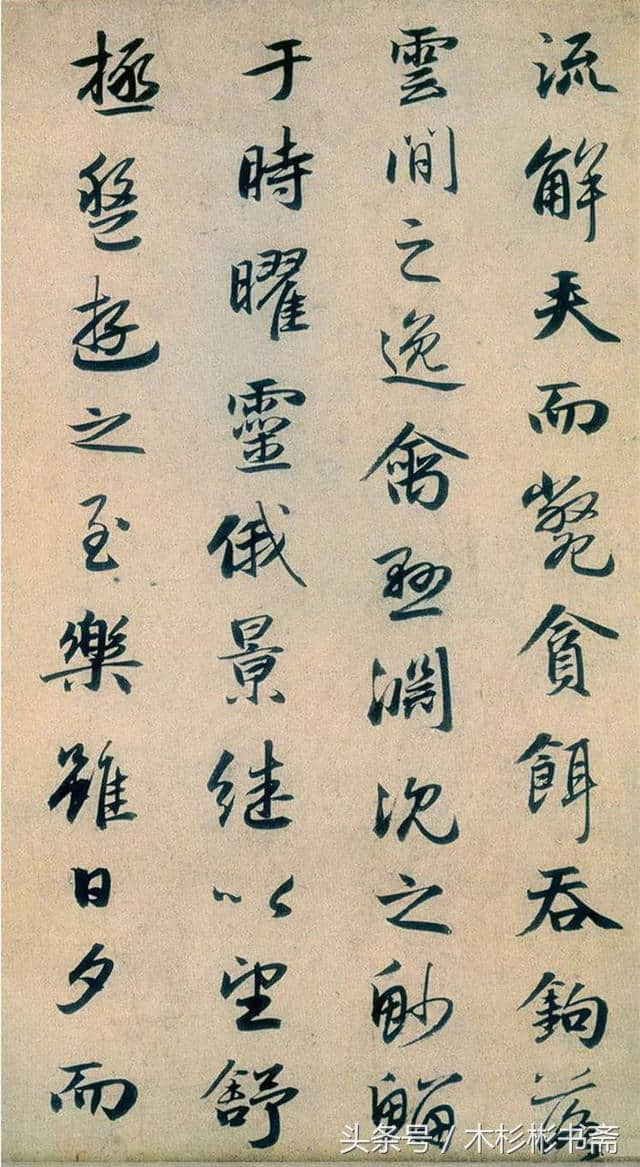 流觧矢而斃貪餌吞鉤落
雲間之逸禽懸淵沉之魦鰡
于時曜靈俄景継以望舒
極盤遊之至樂雖日夕而
头条号 / 木杉彬书斋